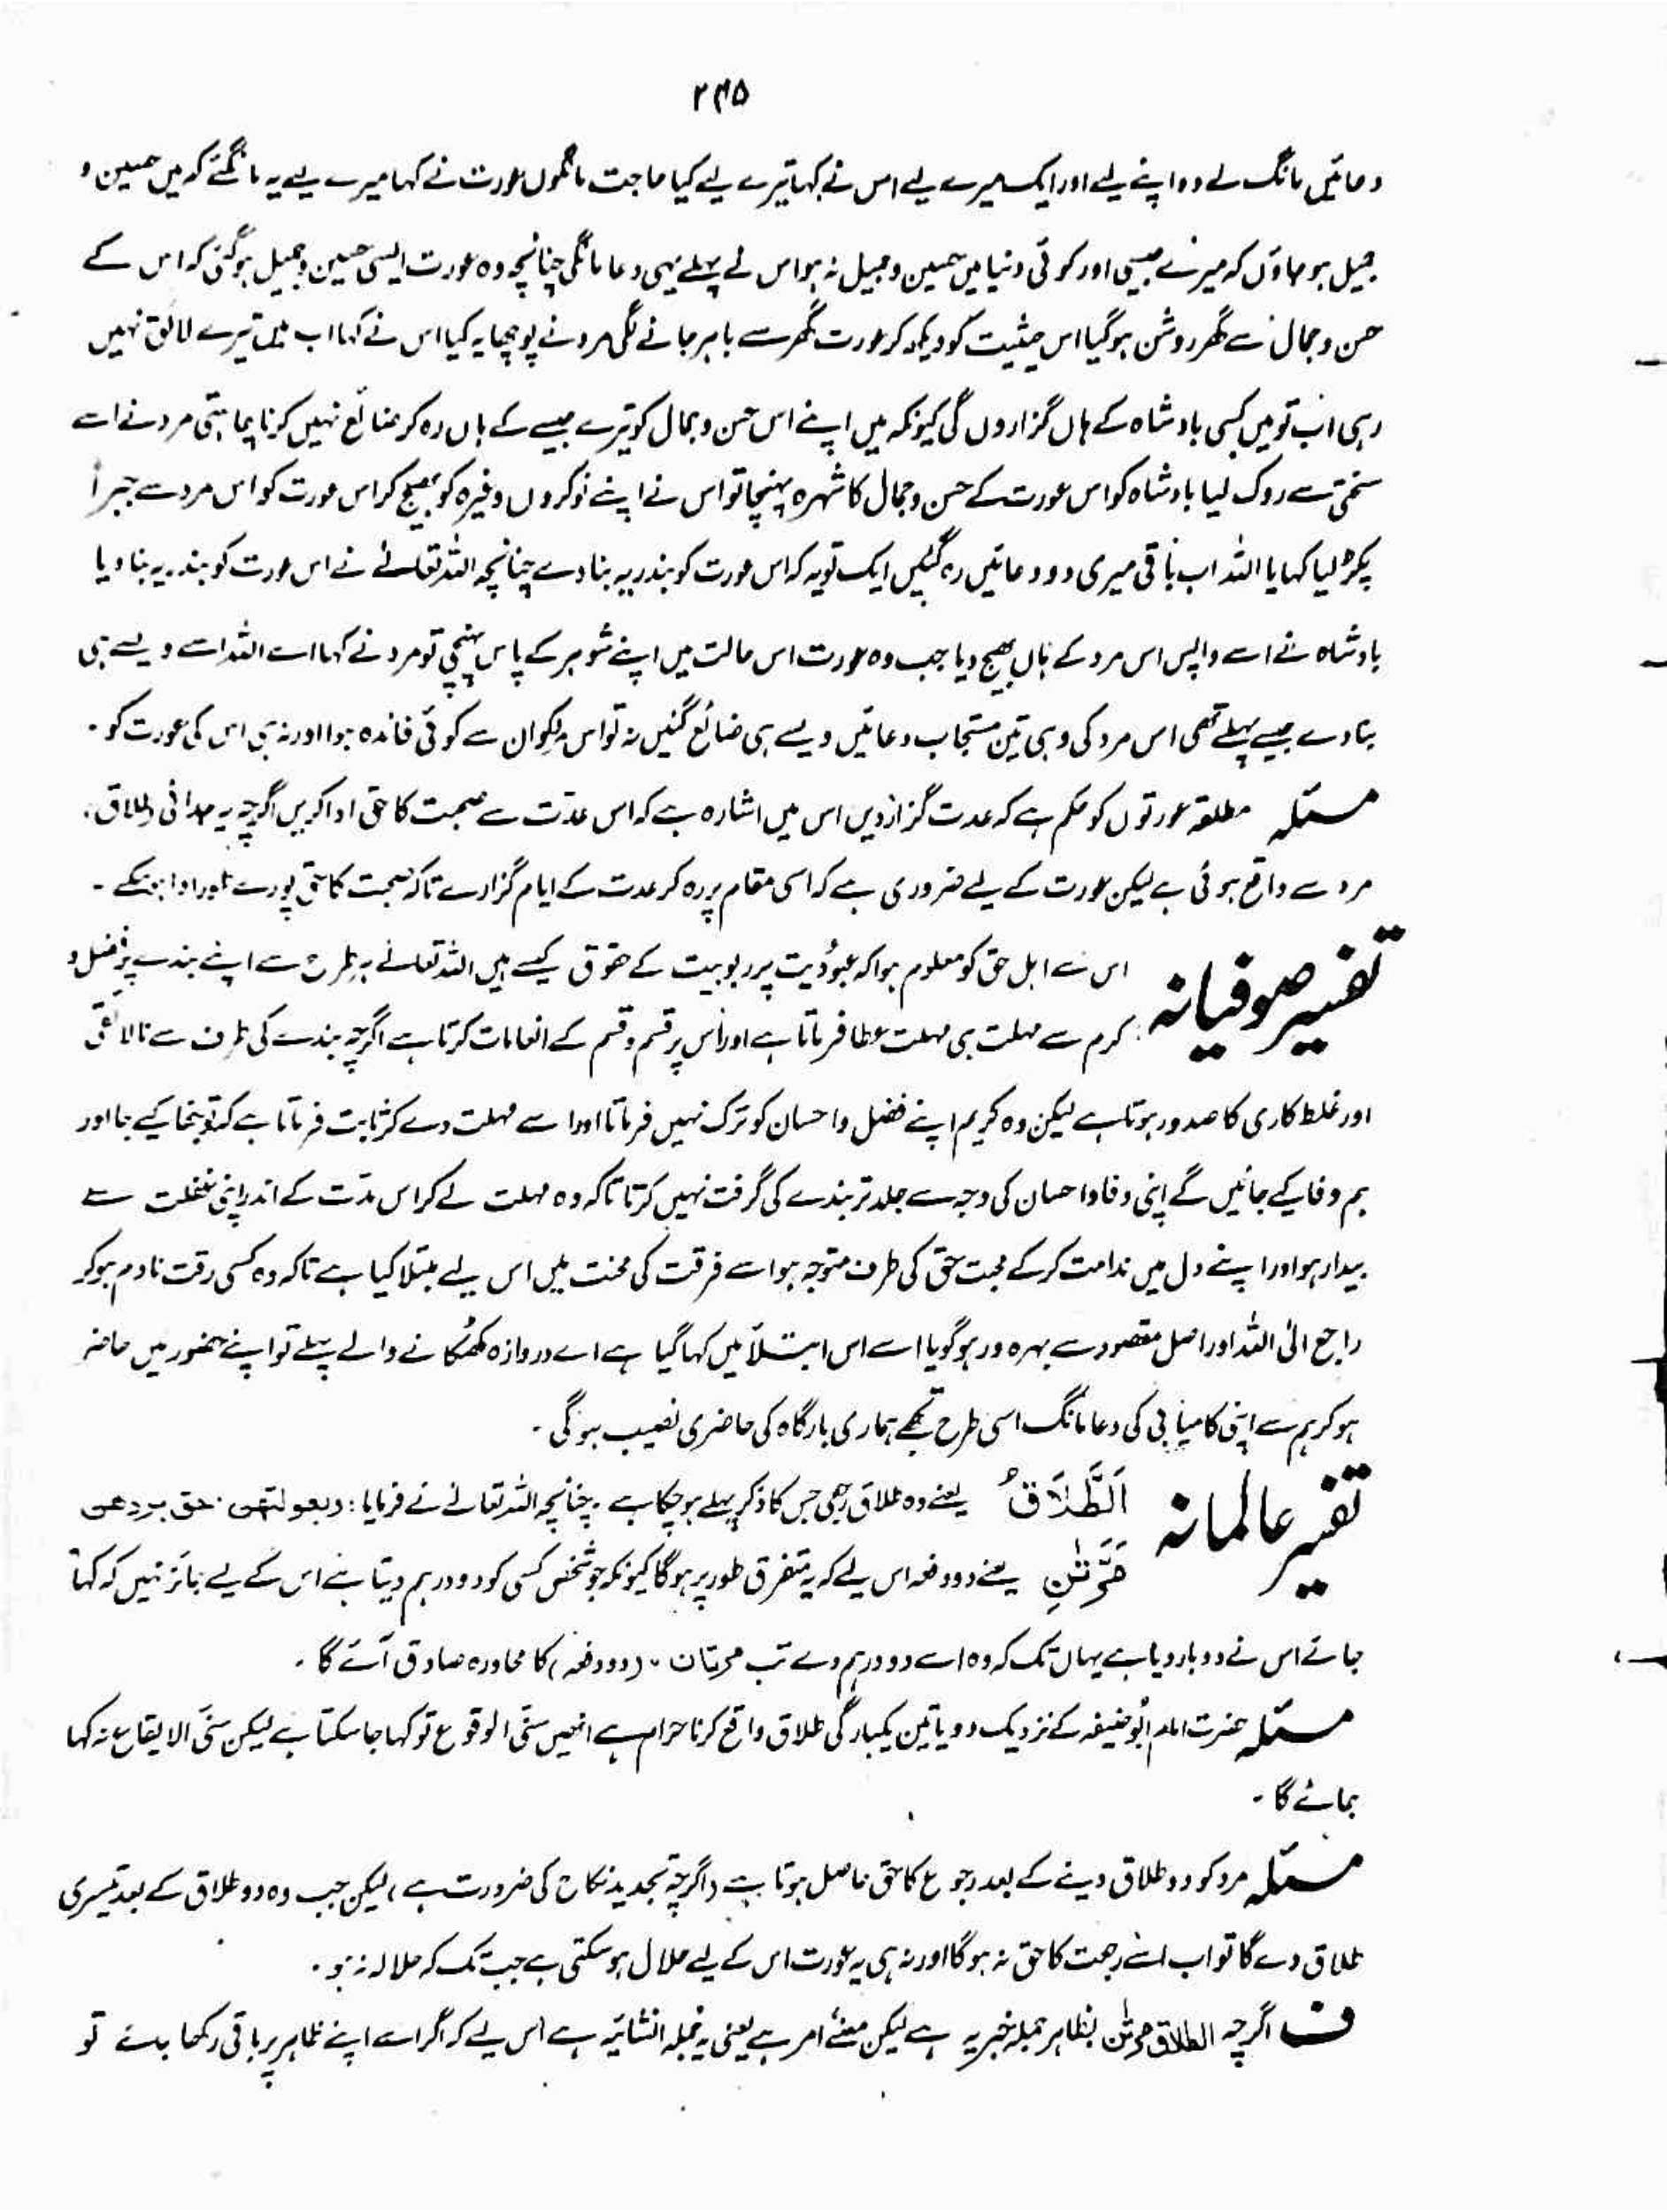 ۲۳۵
دعائیں مانگ لے دو اپنے لیے اور ایک میرے لیے اس نے کہا تیرے لیے کیا حاجت مانگوں عورت نے کہا میرے لیے یہ مانگئے کہ میں حسین و
جمیل ہو جاؤں کہ میرے جیسی اور کوئی دنیا میں حسین و جمیل نہ ہو اس نے پہلے یہی دعا مانگی چنانچہ وہ عورت ایسی حسین و جمیل ہو گئی کہ اس کے
حسن و جمال سے گھر روشن ہو گیا اس حیثیت کو دیکھ کر عورت گھر سے باہر جانے لگی مرد نے پوچھا یہ کیا اس نے کہا اب میں تیرے لائق نہیں
رہی اب تو میں کسی بادشاہ کے ہاں گزاروں گی کیونکہ میں اپنے اس حسن و جمال کو تیرے جیسے کے ہاں رہ کر ضائع نہیں کرنا چاہتی مرد نے اسے
سختی سے روک لیا بادشاہ کو اس عورت کے حسن و جمال کا شہرہ پہنچا تو اس نے اپنے نوکروں وغیرہ کو بھیج کر اس عورت کو اس مرد سے جبراً
پکڑ لیا کہا یا اللہ اب باقی میری دو دعائیں رہ گئیں ایک تو یہ کہ اس عورت کو بندریہ بنا دے چنانچہ اللہ تعالےٰ نے اس عورت کو بندریہ بنا دیا
بادشاہ نے اسے واپس اس مرد کے ہاں بھیج دیا جب وہ عورت اس حالت میں اپنے شوہر کے پاس پہنچی تو مرد نے کہا اے اللہ اسے ویسے ہی
بنا دے جیسے پہلے تھی اس مرد کی وہی تین مستجاب دعائیں ویسے ہی ضائع گئیں نہ تو اس کو ان سے کوئی فائدہ ہوا اور نہ ہی اس کی عورت کو ۔
مسئلہ مطلقہ عورتوں کو حکم ہے کہ عدت گزاردیں اس میں اشارہ ہے کہ اس عدّت سے صحبت کا حق ادا کریں اگرچہ یہ جدائی (طلاق)
مرد سے واقع ہوئی ہے لیکن عورت کے لیے ضروری ہے کہ اسی مقام پر رہ کر عدت کے ایام گزارے تاکہ صحبت کا حق پورے طور ادا ہو سکے ۔
تفسیر صوفیانہ اس سے اہل حق کو معلوم ہوا کہ عبودیت پر ربوبیت کے حقوق کیسے ہیں اللہ تعالےٰ ہر طرح سے اپنے بندے پر فضل و
کرم سے مہلت ہی مہلت عطا فرماتا ہے اور اس پر قسم و قسم کے انعامات کرتا ہے اگرچہ بندے کی طرف سے نالائقی
اور غلط کاری کا صدور ہوتا ہے لیکن وہ کریم اپنے فضل و احسان کو ترک نہیں فرماتا اور اسے مہلت دے کر ثابت فرماتا ہے کہ تو جفا کیے جا اور
ہم وفا کیے جائیں گے اپنی وفا و احسان کی وجہ سے جلد تر بندے کی گرفت نہیں کرتا تاکہ وہ مہلت لے کر اس مدّت کے اندر اپنی غفلت سے
بیدار ہو اور اپنے دل میں ندامت کر کے محبت حق کی طرف متوجہ ہو اسے فرقت کی محنت میں اس لیے مبتلا کیا ہے تاکہ وہ کسی وقت نادم ہو کر
راجع الی اللہ اور اصل مقصود سے بہرہ ور ہو گویا اسے اس ابتلاء میں کہا گیا ہے اے دروازہ کھٹکانے والے پہلے تو اپنے حضور میں حاضر
ہو کر ہم سے اپنی کامیابی کی دعا مانگ اسی طرح تجھے ہماری بارگاہ کی حاضری نصیب ہو گی ۔
تفسیر عالمانہ اَلطَّلَاقُ یعنے وہ طلاق رجعی جس کا ذکر پہلے ہو چکا ہے ۔ چنانچہ اللہ تعالےٰ نے فرمایا : وبعولتھن حق بردھن
مَرَّتٰنِ یعنے دو دفعہ اس لیے کہ یہ متفرق طور پر ہو گا کیونکہ جو شخص کسی کو دو درہم دیتا ہے اس کے لیے جائز نہیں کہ کہا
جائے اس نے دو بار دیا ہے یہاں تک کہ وہ اسے دو درہم دے تب مرتان ۔ (دو دفعہ) کا محاورہ صادق آئے گا ۔
مسئلہ حضرت امام ابوحنیفہ کے نزدیک دو یا تین یکبارگی طلاق واقع کرنا حرام ہے انھیں سنّی الوقوع تو کہا جا سکتا ہے لیکن سنّی الایقاع نہ کہا
جائے گا ۔
مسئلہ مرد کو دو طلاق دینے کے بعد رجوع کا حق حاصل ہوتا ہے (اگرچہ تجدید نکاح کی ضرورت ہے) لیکن جب وہ دو طلاق کے بعد تیسری
طلاق دے گا تو اب اسے رجعت کا حق نہ ہو گا اور نہ ہی یہ عورت اس کے لیے حلال ہو سکتی ہے جب تک کہ حلالہ نہ ہو ۔
ف اگرچہ الطلاق مرتٰن بظاہر جملہ خبریہ ہے لیکن معنےً امر ہے یعنی یہ جملہ انشائیہ ہے اس لیے کہ اگر اسے اپنے ظاہر پر باقی رکھا جائے تو